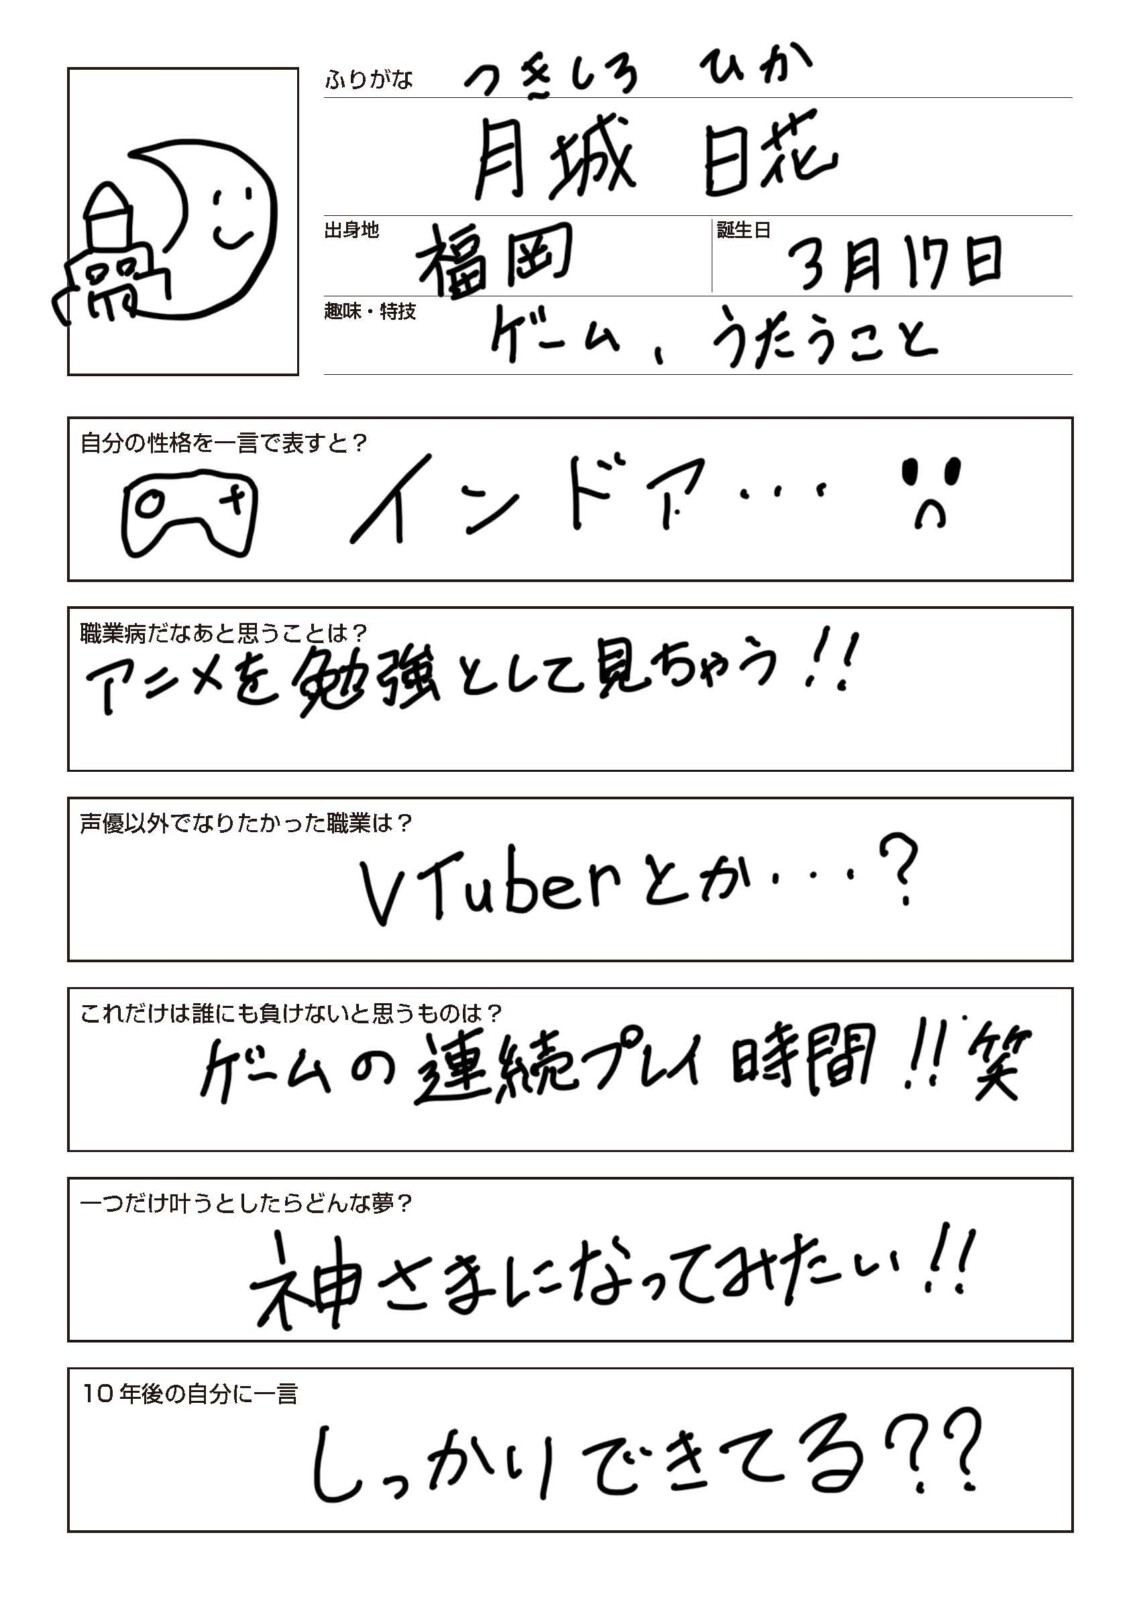 ふりがな つきしろ ひか
月城 日花
出身地 福岡 誕生日 3月17日
趣味・特技 ゲーム、うたうこと
自分の性格を一言で表すと？
インドア・・・
職業病だなあと思うことは？
アニメを勉強として見ちゃう!!
声優以外でなりたかった職業は？
VTuberとか・・・?
これだけは誰にも負けないと思うものは？
ゲームの連続プレイ時間!!笑
一つだけ叶うとしたらどんな夢？
神さまになってみたい!!
10年後の自分に一言
しっかりできてる??